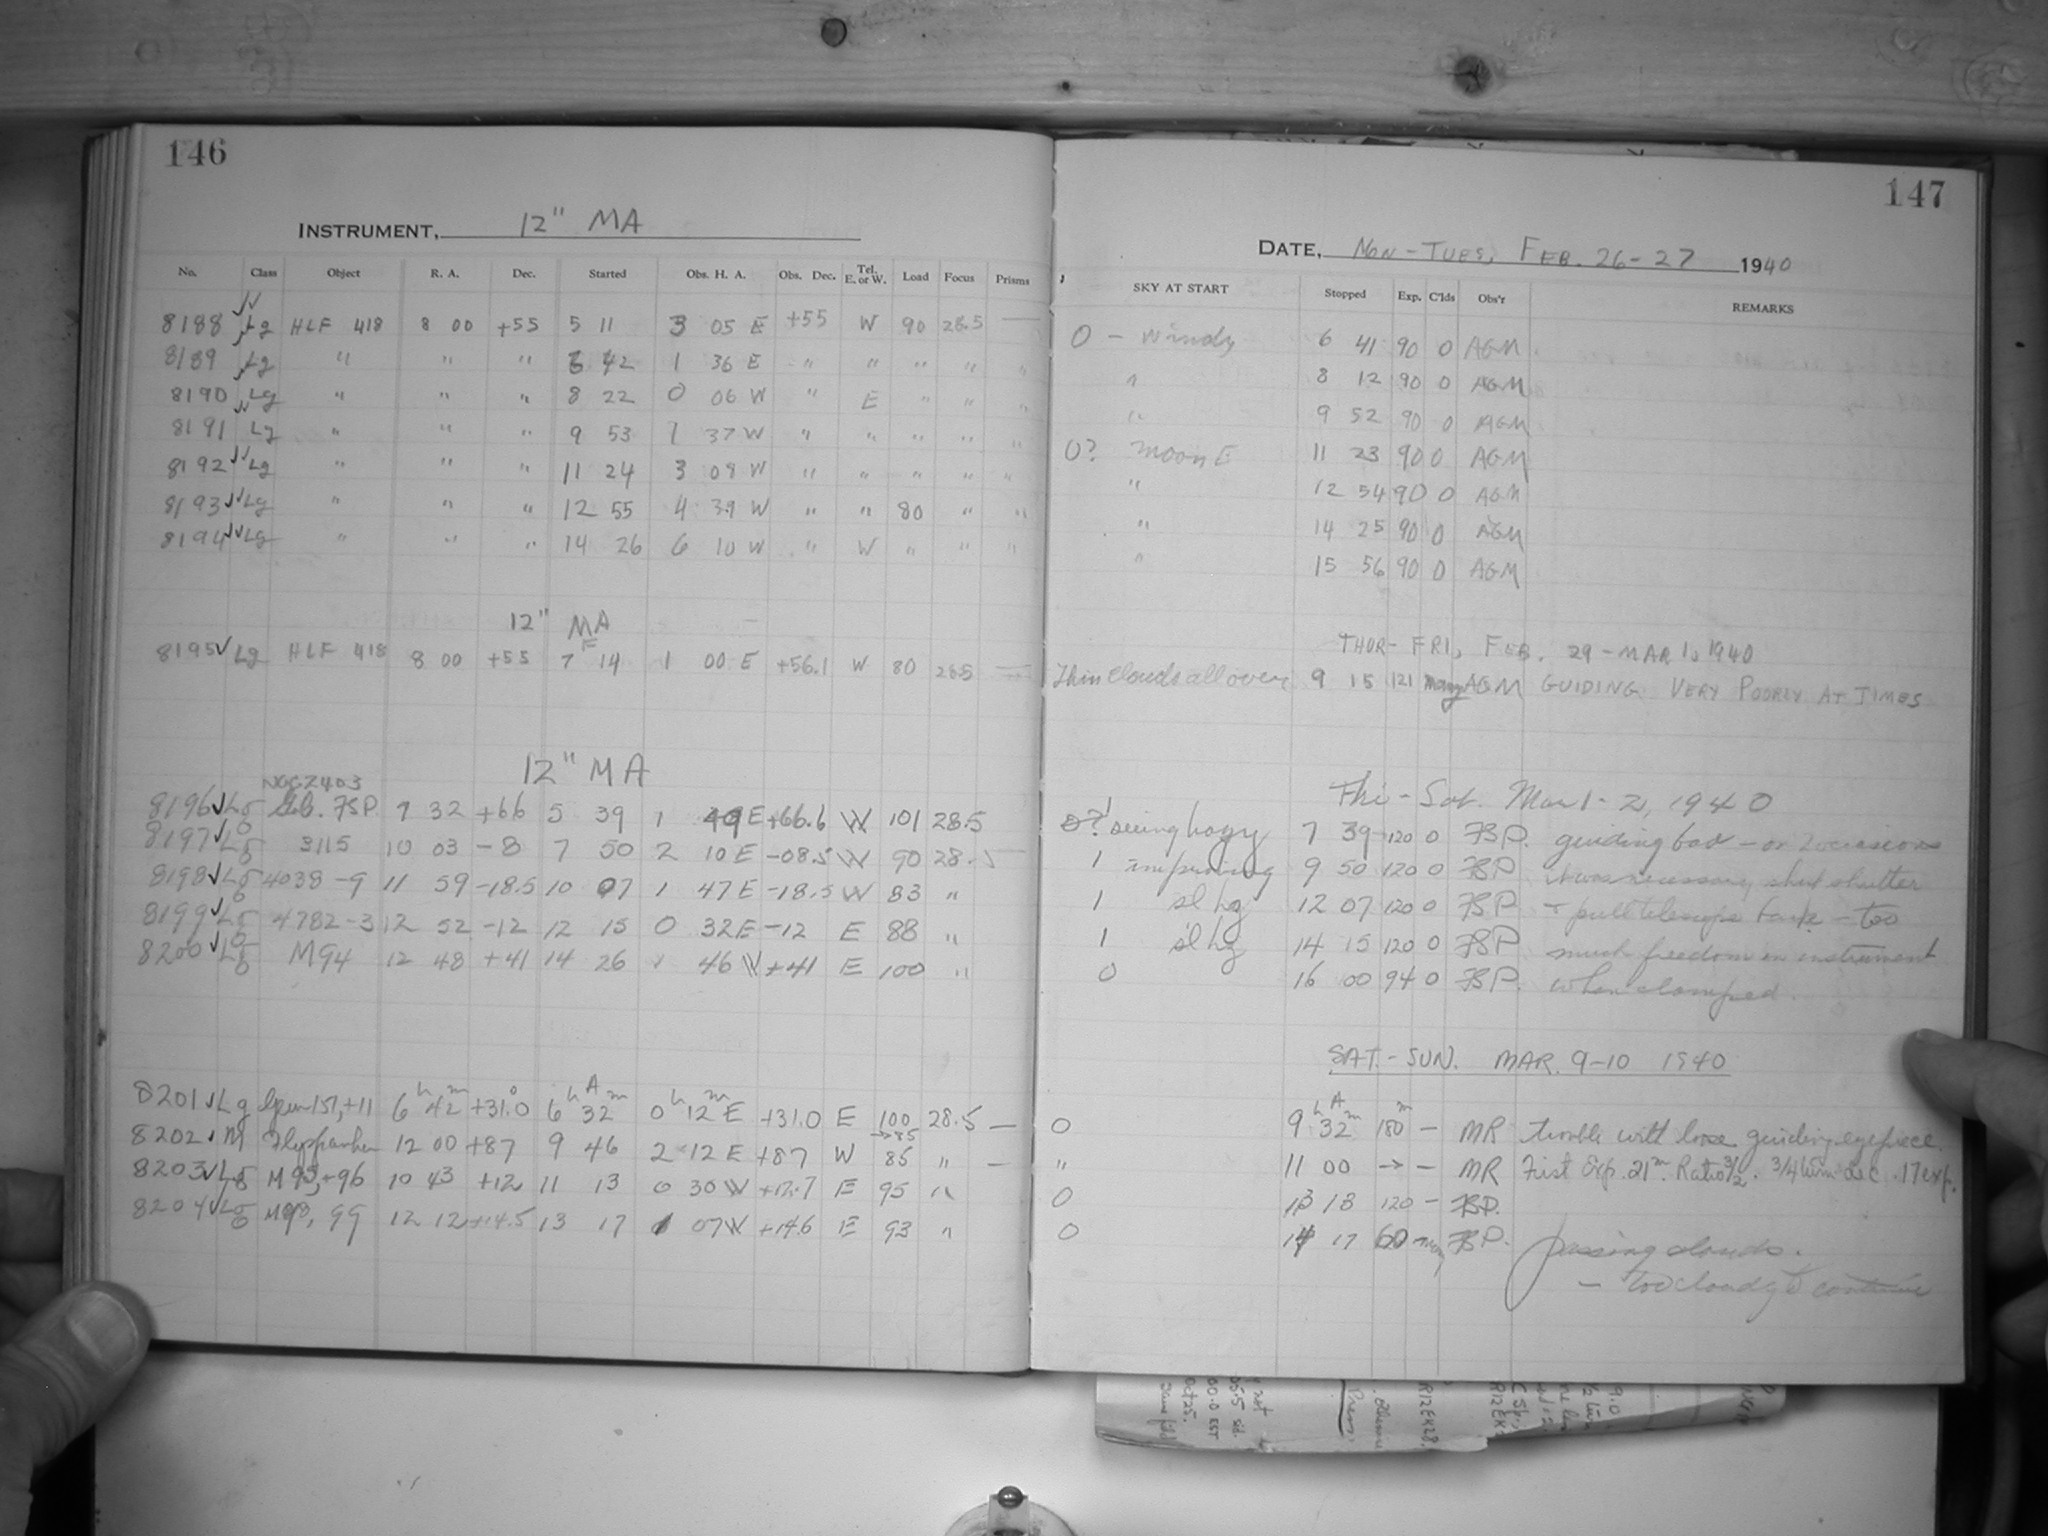 146
INSTRUMENT, 12" MA
No. Class Object R. A. Dec. Started Obs. H. A. Obs. Dec. Tel. E. or W. Load Focus Prisms
8188 Lg HLF 418 8 00 +55 5 11 3 05 E +55 W 90 28.5 —
8189 Lg " " " 6 42 1 36 E " " " " "
8190 Lg " " " 8 22 0 06 W " E " " "
8191 Lg " " " 9 53 1 37 W " " " " "
8192 Lg " " " 11 24 3 08 W " " " " "
8193 Lg " " " 12 55 4 39 W " " 80 " "
8194 Lg " " " 14 26 6 10 W " W " " "
12" MA
8195 Lg HLF 418 8 00 +55 7 14 1 00 E +56.1 W 80 28.5 —
12" MA
NGC 2403
8196 Lg FSP. 7 32 +66 5 39 1 49 E +66.6 W 101 28.5
8197 Lg 3115 10 03 -8 7 50 2 10 E -08.5 W 90 28.5
8198 Lg 4038-9 11 59 -18.5 10 07 1 47 E -18.5 W 83 "
8199 Lg 4782-3 12 52 -12 12 15 0 32 E -12 E 88 "
8200 Lg M94 12 48 +41 14 26 1 46 W +41 E 100 "
8201 Lg 6h 42m +31.0 6h 32m A 0h 12m E +31.0 E 100 → 85 28.5 —
8202 M 12 00 +87 9 46 2 12 E +87 W 85 " —
8203 Lg M95, +96 10 43 +12 11 13 0 30 W +12.7 E 95 "
8204 Lg M98, 99 12 12 +14.5 13 17 1 07 W +14.6 E 93 "
147
DATE, MON - TUES, FEB. 26-27 1940
SKY AT START Stopped Exp. C'lds Obs'r REMARKS
0 - windy 6 41 90 0 AGM
" 8 12 90 0 AGM
" 9 52 90 0 AGM
0? moon E 11 23 90 0 AGM
" 12 54 90 0 AGM
" 14 25 90 0 AGM
" 15 56 90 0 AGM
THUR - FRI, FEB. 29 - MAR 1, 1940
Thin clouds all over 9 15 121 many AGM GUIDING VERY POORLY AT TIMES
Fri - Sat. Mar 1-2, 1940
0? seeing 7 39 120 0 FSP. guiding bad - on 2 occasions
1 improving 9 50 120 0 FSP. it was necessary shut shutter
1 sl hz 12 07 120 0 FSP + pull telescope back - too
1 sl hz 14 15 120 0 FSP much freedom in instrument
0 16 00 94 0 FSP. when clamped.
SAT. - SUN. MAR. 9-10 1940
0 9h 32m A 180m — MR Trouble with loose guiding eyepiece.
" 11 00 → — MR First Exp. 21m. Ratio 3/2. 3/4 turn dec. 17 exp.
0 13 13 120 - FSP.
0 14 17 60 many FSP. passing clouds.
- too cloudy to continue